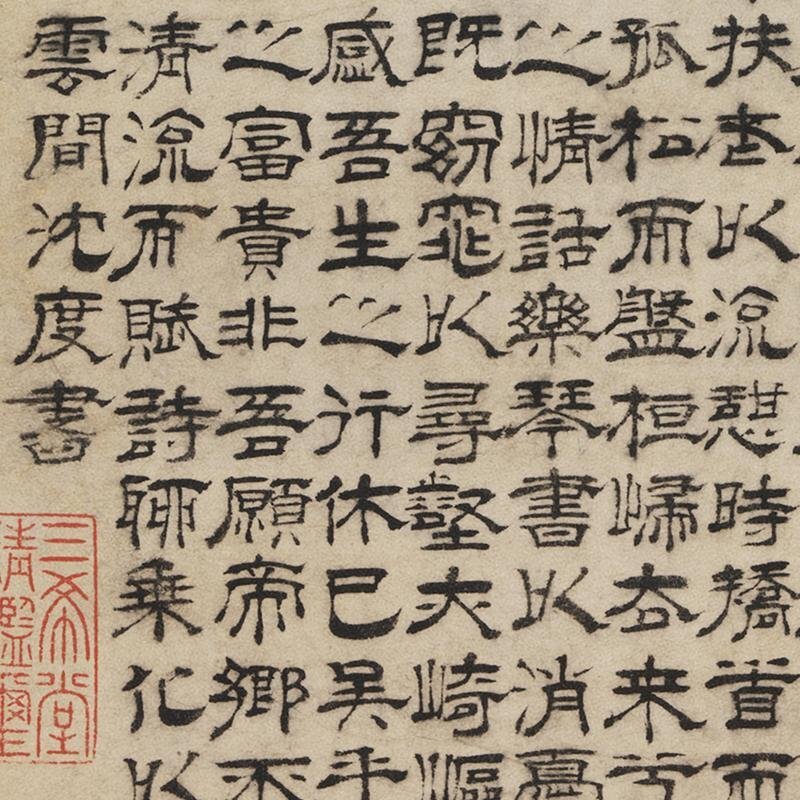 扶老以流憩時撟首而
孤松而盤桓歸去来兮
之情話樂琴書以消憂
既窈窕以尋壑亦崎嶇
感吾生之行休已矣乎
之富貴非吾願帝鄉不
清流而賦詩聊乘化以
雲間沈度書
三希堂
精鑒璽